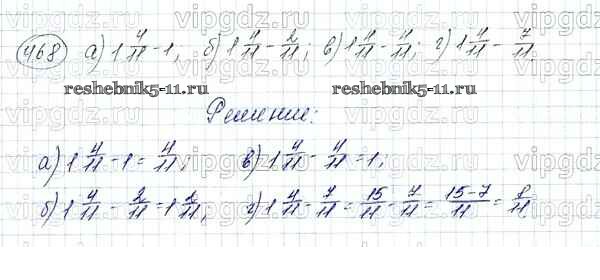 vipgdz.ru vipgdz.ru vipgdz.ru
468 а) 1 4/11 - 1; б) 1 4/11 - 2/11; в) 1 4/11 - 4/11; г) 1 4/11 - 7/11.
reshebnik5-11.ru reshebnik5-11.ru
Решение:
а) 1 4/11 - 1 = 4/11; в) 1 4/11 - 4/11 = 1;
б) 1 4/11 - 2/11 = 1 2/11; г) 1 4/11 - 7/11 = 15/11 - 7/11 = 15-7/11 = 8/11